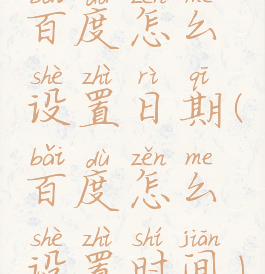 bǎi dù zěn me
百度怎么
shè zhì rì qī
设置日期(
bǎi dù zěn me
百度怎么
shè zhì shí jiān
设置时间)